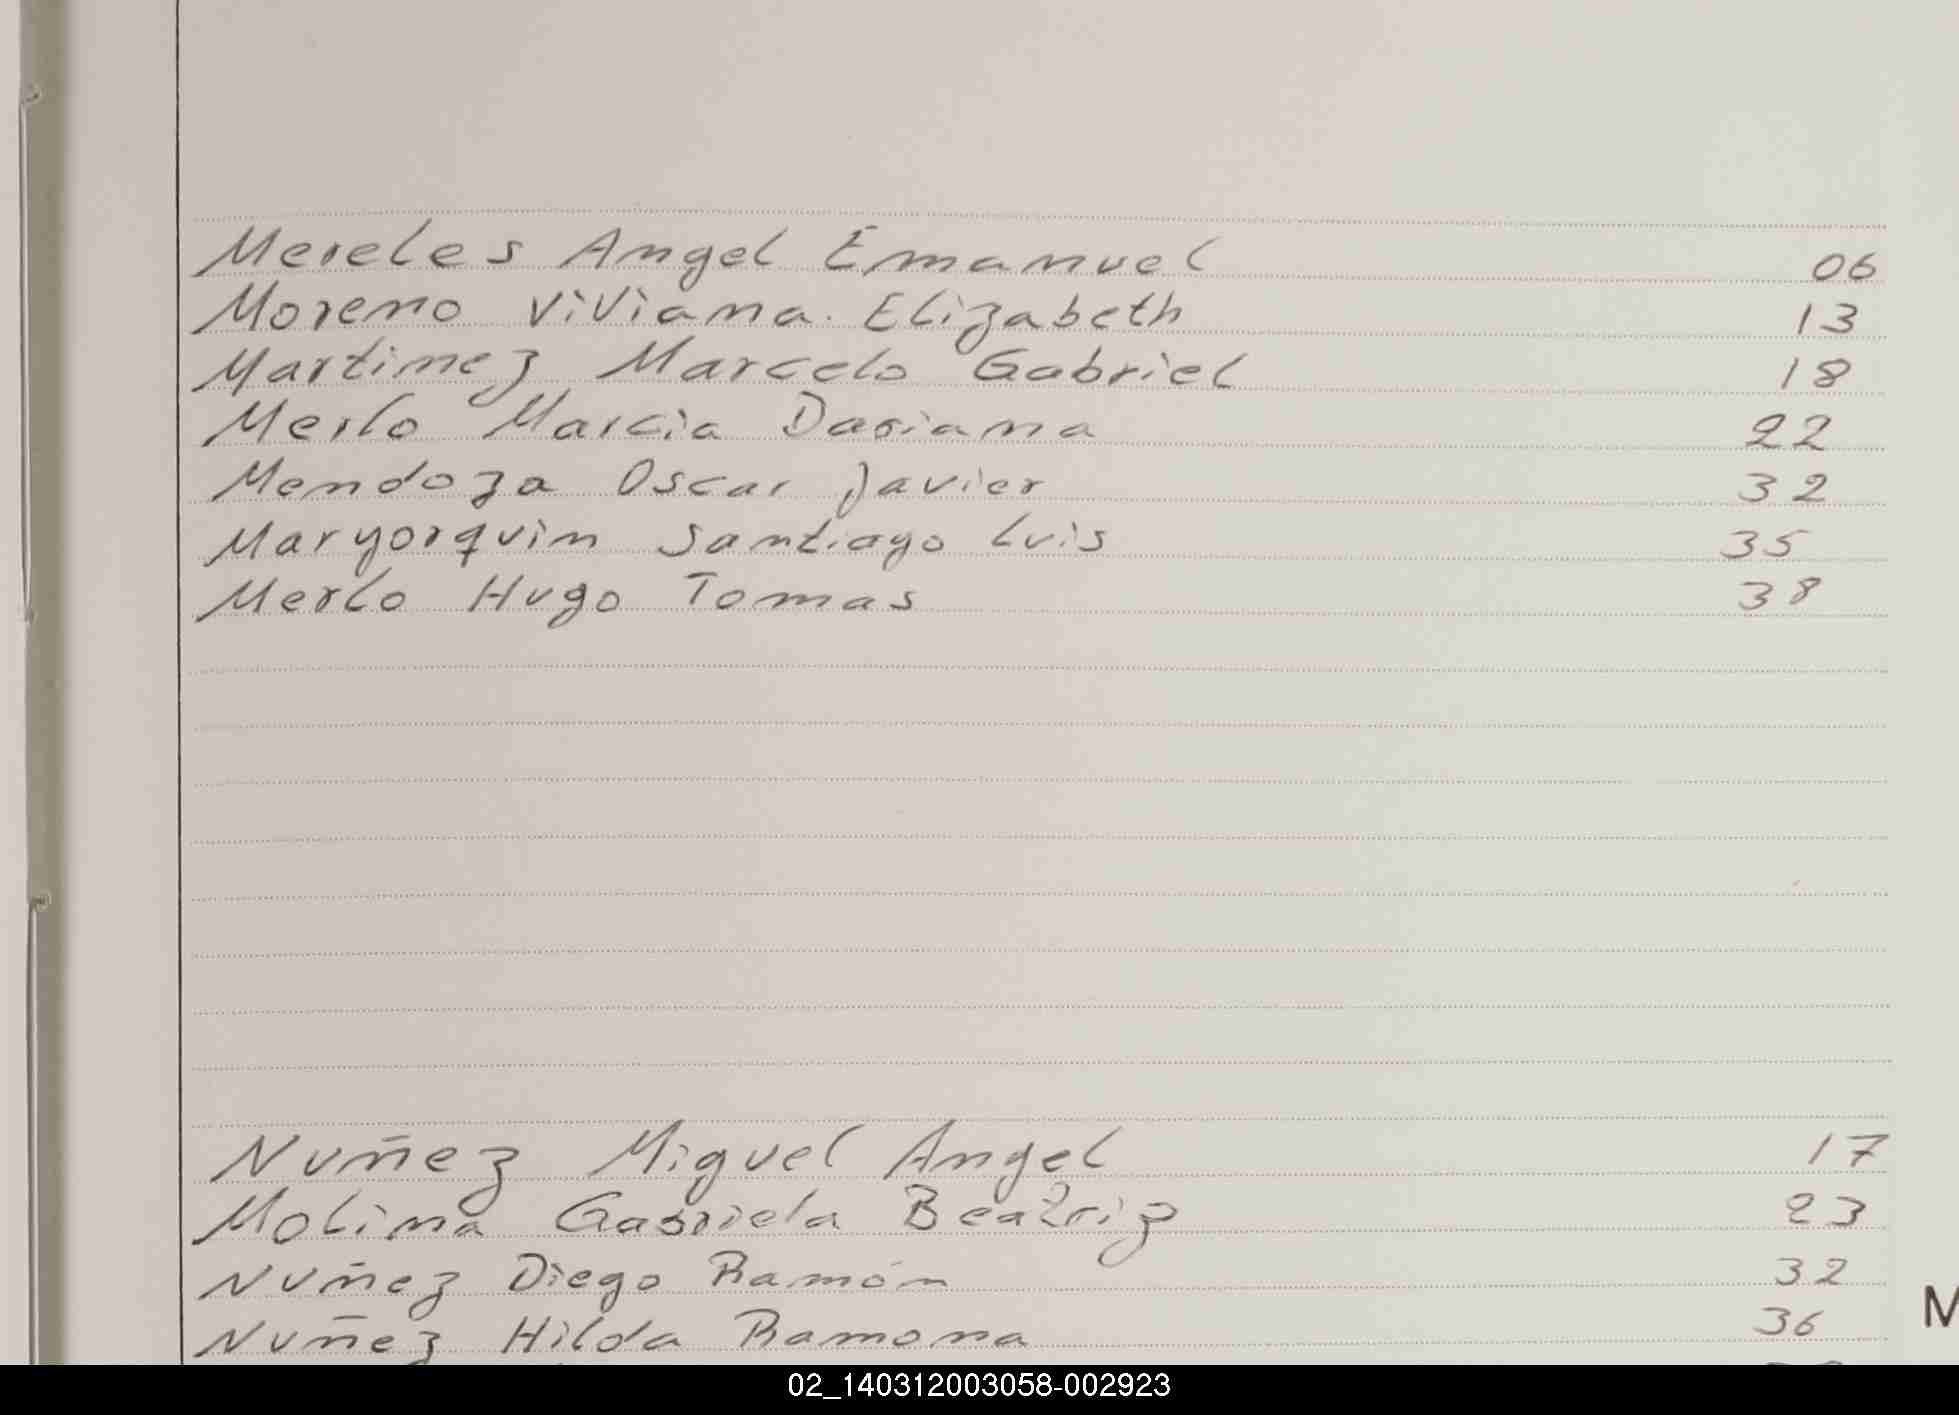 Mereles Angel Emanuel 06
Moreno Viviana Elizabeth 13
Martinez Marcelo Gabriel 18
Merlo Marcia Dariana 22
Mendoza Oscar Javier 32
Maryorquin Santiago Luis 35
Merlo Hugo Tomas 38
Nuñez Miguel Angel 17
Molina Gabriela Beatriz 23
Nuñez Diego Ramón 32
M
Nuñez Hilda Ramona 36
02_140312003058-002923